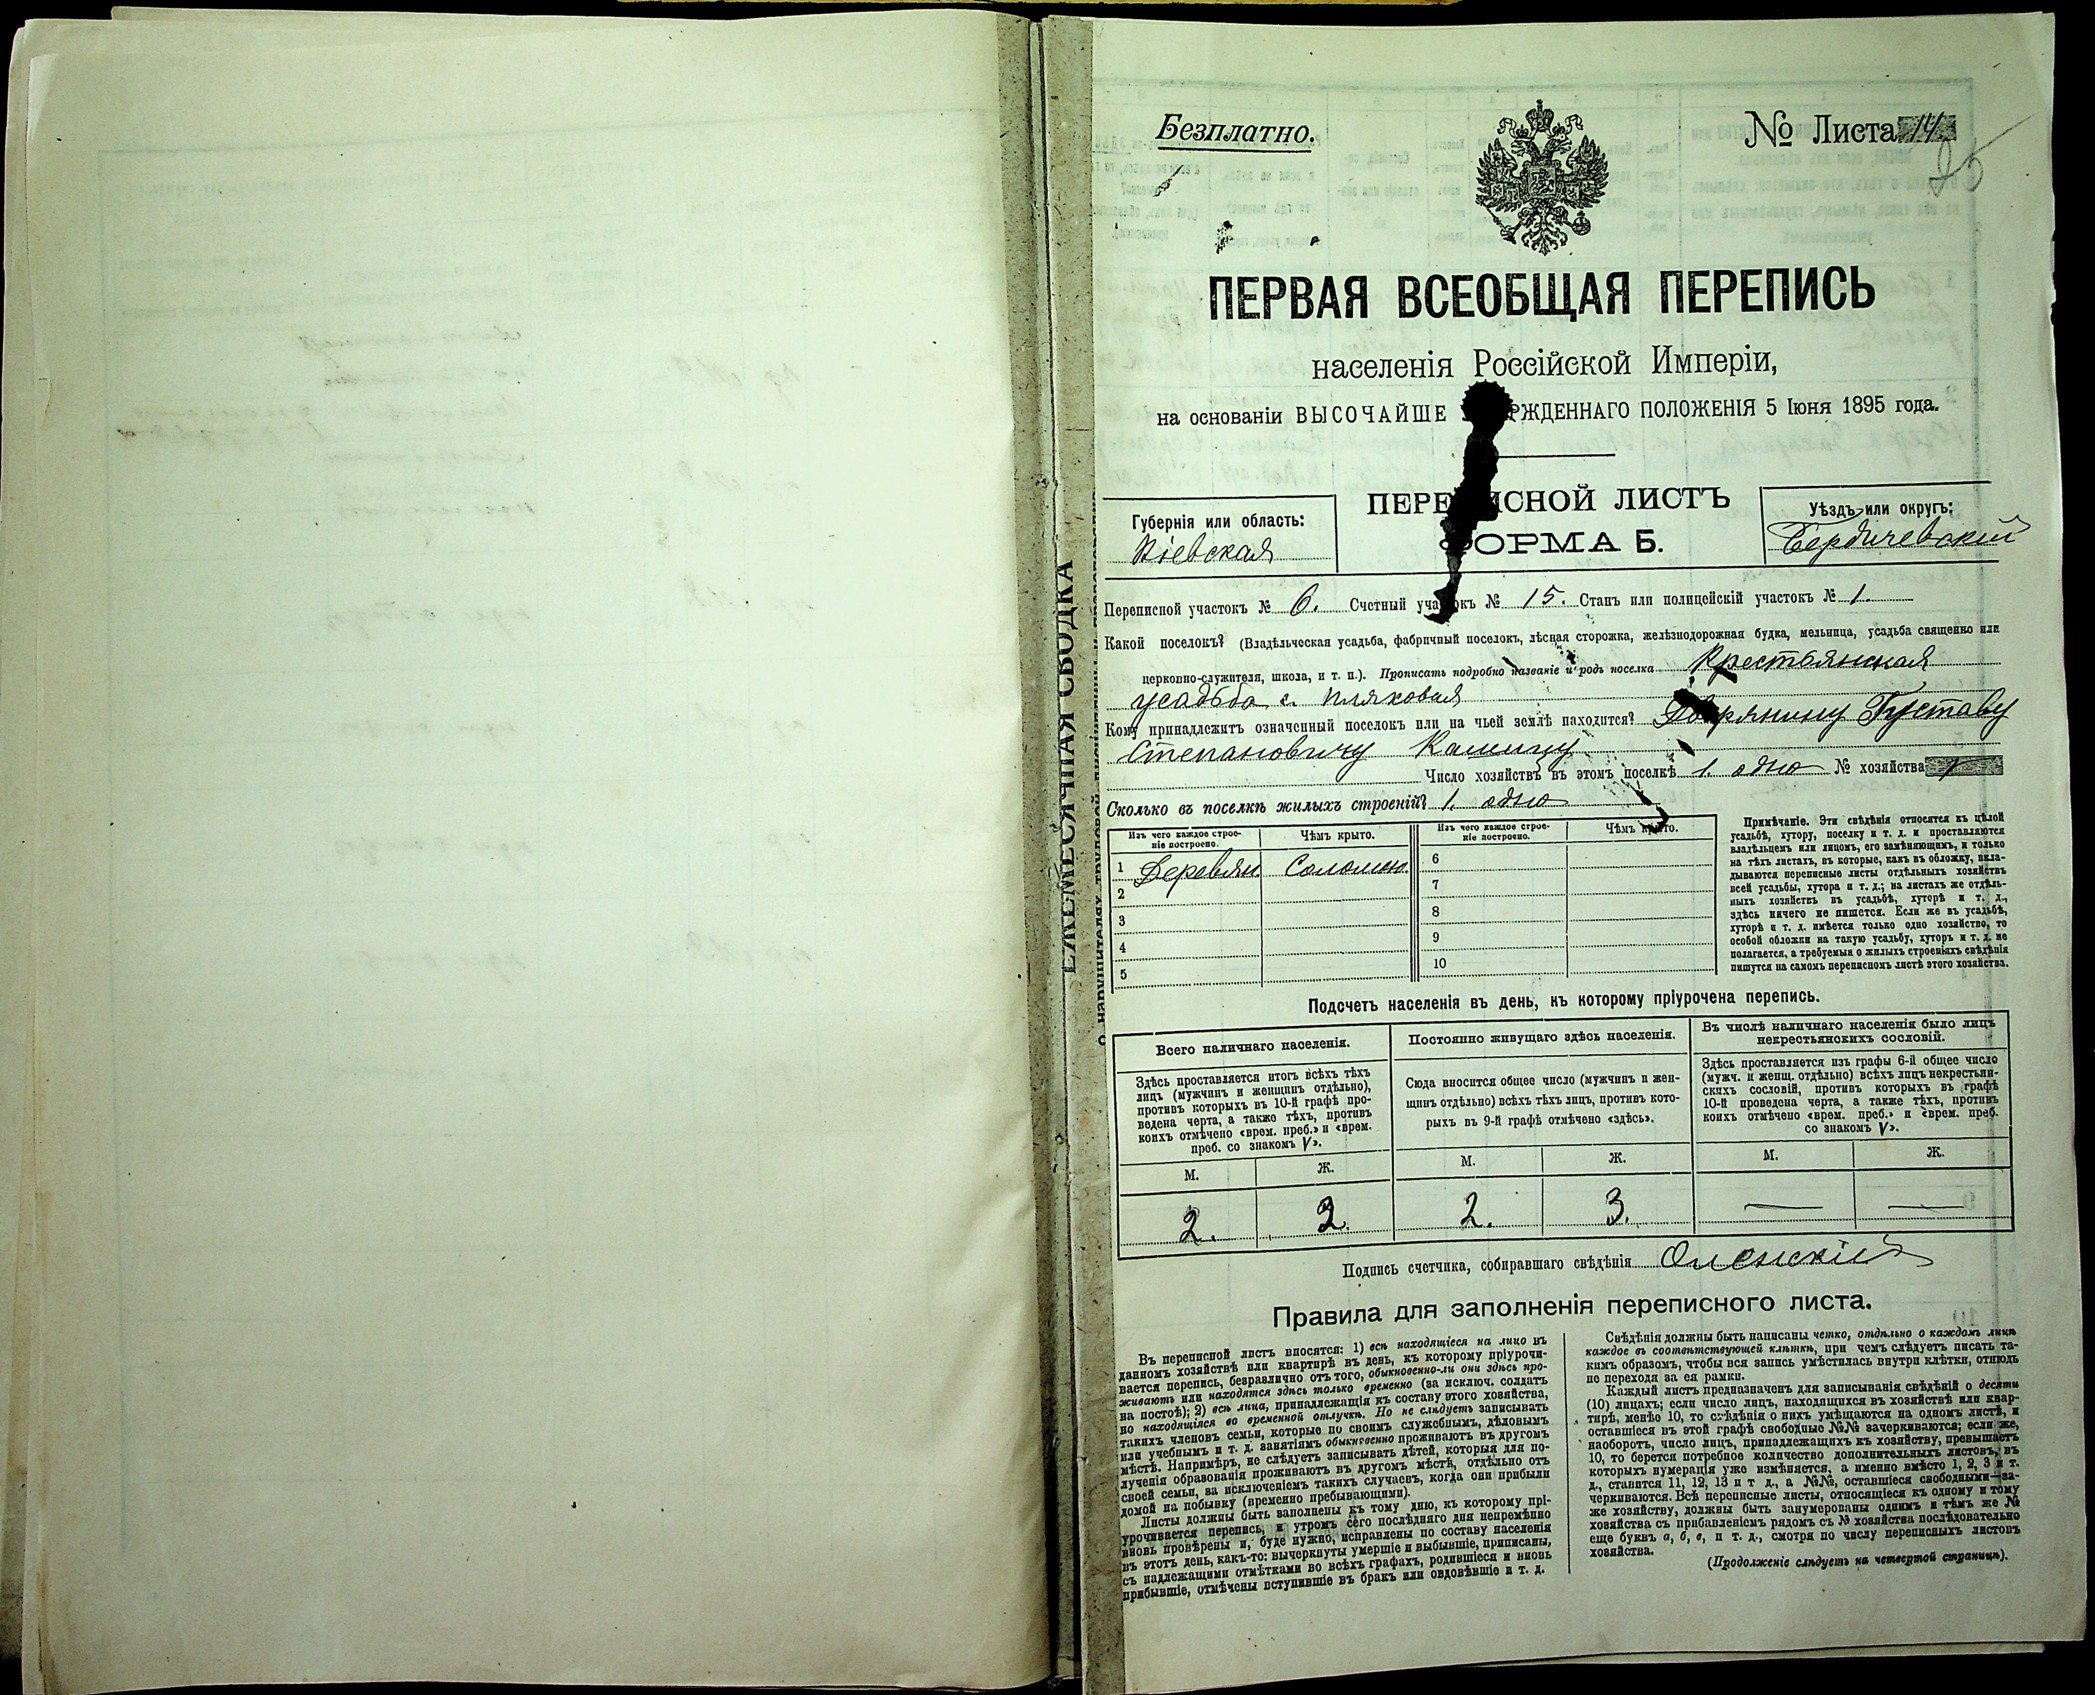 Безплатно.
№ Листа 14
25
ПЕРВАЯ ВСЕОБЩАЯ ПЕРЕПИСЬ
населенія Россійской Имперіи,
на основаніи ВЫСОЧАЙШЕ РЖДЕННАГО ПОЛОЖЕНІЯ 5 Іюня 1895 года.
ПЕРЕ ИСНОЙ ЛИСТЪ
ФОРМА Б.
Губернія или область:
Кіевская
Уѣздъ или округъ:
Бердичевскій
Переписной участокъ № 6. Счетный участокъ № 15. Станъ или полицейскій участокъ № 1.
Какой поселокъ? (Владѣльческая усадьба, фабричный поселокъ, лѣсная сторожка, желѣзнодорожная будка, мельница, усадьба священно или
церковно-служителя, школа, и т. п.). Прописать подробно названіе и родъ поселка Крестьянская
усадьба с.
Кому принадлежитъ означенный поселокъ или на чьей землѣ находится? Густаву
Степановичу
Число хозяйствъ въ этомъ поселкѣ 1. одно № хозяйства 1
Сколько въ поселкѣ жилыхъ строеній? 1. одно
Изъ чего каждое строеніе построено. Чѣмъ крыто. Изъ чего каждое строеніе построено. Чѣмъ крыто.
1 Деревян. Соломен. 6
2 7
3 8
4 9
5 10
Примѣчаніе. Эти свѣдѣнія относятся къ цѣлой
усадьбѣ, хутору, поселку и т. д. и проставляются
владѣльцемъ или лицомъ, его замѣняющимъ, и только
на тѣхъ листахъ, въ которые, какъ въ обложку, вкла-
дываются переписные листы отдѣльныхъ хозяйствъ
всей усадьбы, хутора и т. д.; на листахъ же отдѣль-
ныхъ хозяйствъ въ усадьбѣ, хуторѣ и т. д.,
здѣсь ничего не пишется. Если же въ усадьбѣ,
хуторѣ и т. д. имѣется только одно хозяйство, то
особой обложки на такую усадьбу, хуторъ и т. д. не
полагается, а требуемыя о жилыхъ строеніяхъ свѣдѣнія
пишутся на самомъ переписномъ листѣ этого хозяйства.
Подсчетъ населенія въ день, къ которому пріурочена перепись.
Всего наличнаго населенія.
Здѣсь проставляется итогъ всѣхъ тѣхъ
лицъ (мужчинъ и женщинъ отдѣльно),
противъ которыхъ въ 10-й графѣ про-
ведена черта, а также тѣхъ, противъ
коихъ отмѣчено «врем. преб.» и «врем.
преб. со знакомъ V».
М. Ж.
2. 2.
Постоянно живущаго здѣсь населенія.
Сюда вносится общее число (мужчинъ и жен-
щинъ отдѣльно) всѣхъ тѣхъ лицъ, противъ кото-
рыхъ въ 9-й графѣ отмѣчено «здѣсь».
М. Ж.
2. 3.
Въ числѣ наличнаго населенія было лицъ
некрестьянскихъ сословій.
Здѣсь проставляется изъ графы 6-й общее число
(мужч. и женщ. отдѣльно) всѣхъ лицъ некрестьян-
скихъ сословій, противъ которыхъ въ графѣ
10-й проведена черта, а также тѣхъ, противъ
коихъ отмѣчено «врем. преб.» и «врем. преб.
со знакомъ V».
М. Ж.
— —
Подпись счетчика, собиравшаго свѣдѣнія
Правила для заполненія переписного листа.
Въ переписной листъ вносятся: 1) всѣ находящіеся на лицо въ
данномъ хозяйствѣ или квартирѣ въ день, къ которому пріурочи-
вается перепись, безразлично отъ того, обыкновенно-ли они здѣсь про-
живаютъ или находятся здѣсь только временно (за исключ. солдатъ
на постоѣ); 2) всѣ лица, принадлежащія къ составу этого хозяйства,
но находящіяся во временной отлучкѣ. Но не слѣдуетъ записывать
такихъ членовъ семьи, которые по своимъ служебнымъ, дѣловымъ
или учебнымъ и т. д. занятіямъ обыкновенно проживаютъ въ другомъ
мѣстѣ. Напримѣръ, не слѣдуетъ записывать дѣтей, которыя для по-
лученія образованія проживаютъ въ другомъ мѣстѣ, отдѣльно отъ
своей семьи, за исключеніемъ такихъ случаевъ, когда они прибыли
домой на побывку (временно пребывающими).
Листы должны быть заполнены къ тому дню, къ которому прі-
урочивается перепись, и утромъ сего послѣдняго дня непремѣнно
вновь провѣрены и, буде нужно, исправлены по составу населенія
въ этотъ день, какъ-то: вычеркнуты умершіе и выбывшіе, приписаны,
съ надлежащими отмѣтками во всѣхъ графахъ, родившіеся и вновь
прибывшіе, отмѣчены вступившіе въ бракъ или овдовѣвшіе и т. д.
Свѣдѣнія должны быть написаны четко, отдѣльно о каждомъ лицѣ
каждое въ соотвѣтствующей клѣткѣ, при чемъ слѣдуетъ писать та-
кимъ образомъ, чтобы вся запись умѣстилась внутри клѣтки, отнюдь
не переходя за ея рамки.
Каждый листъ предназначенъ для записыванія свѣдѣній о десяти
(10) лицахъ; если число лицъ, находящихся въ хозяйствѣ или квар-
тирѣ, менѣе 10, то свѣдѣнія о нихъ умѣщаются на одномъ листѣ, и
оставшіеся въ этой графѣ свободные №№ зачеркиваются; если же,
наоборотъ, число лицъ, принадлежащихъ къ хозяйству, превышаетъ
10, то берется потребное количество дополнительныхъ листовъ, въ
которыхъ нумерація уже измѣняется, а именно вмѣсто 1, 2, 3 и т.
д., ставится 11, 12, 13 и т д., а №№, оставшіеся свободными—за-
черкиваются. Всѣ переписные листы, относящіеся къ одному и тому
же хозяйству, должны быть занумерованы однимъ и тѣмъ же №
хозяйства съ прибавленіемъ рядомъ съ № хозяйства послѣдовательно
еще буквъ а, б, в, и т. д., смотря по числу переписныхъ листовъ
хозяйства.
(Продолженіе слѣдуетъ на четвертой страницѣ).
ЕЖЕМЕСЯЧНАЯ СВОДКА